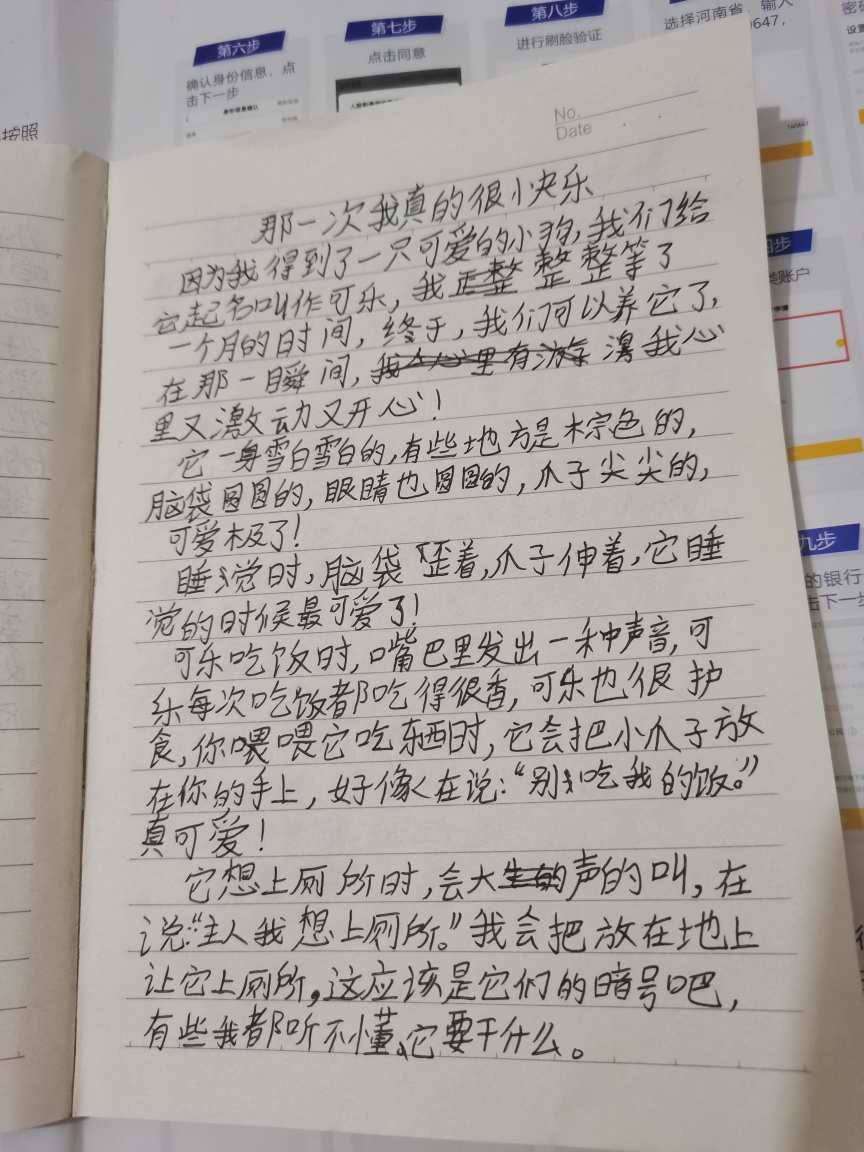 第六步
确认身份信息，点
击下一步
第七步
点击同意
第八步
进行刷脸验证
选择河南省，输入
0647，
按照
No.
Date
那一次我真的很快乐
因为我得到了一只可爱的小狗，我们给
它起名叫作可乐，我整整等了
一个月的时间，终于，我们可以养它了，
在那一瞬间，我心
里又激动又开心！
它一身雪白雪白的，有些地方是棕色的，
脑袋圆圆的，眼睛也圆圆的，爪子尖尖的，
可爱极了！
睡觉时，脑袋歪着，爪子伸着，它睡
觉的时候最可爱了！
可乐吃饭时，嘴巴里发出一种声音，可
乐每次吃饭都吃得很香，可乐也很护
食，你喂喂它吃东西时，它会把小爪子放
在你的手上，好像在说：“别吃我的饭。”
真可爱！
它想上厕所时，会大声的叫，在
说：“主人我想上厕所。”我会把放在地上
让它上厕所，这应该是它们的暗号吧，
有些我都听不懂、它要干什么。
步
账户
九步
的银行
击下一步